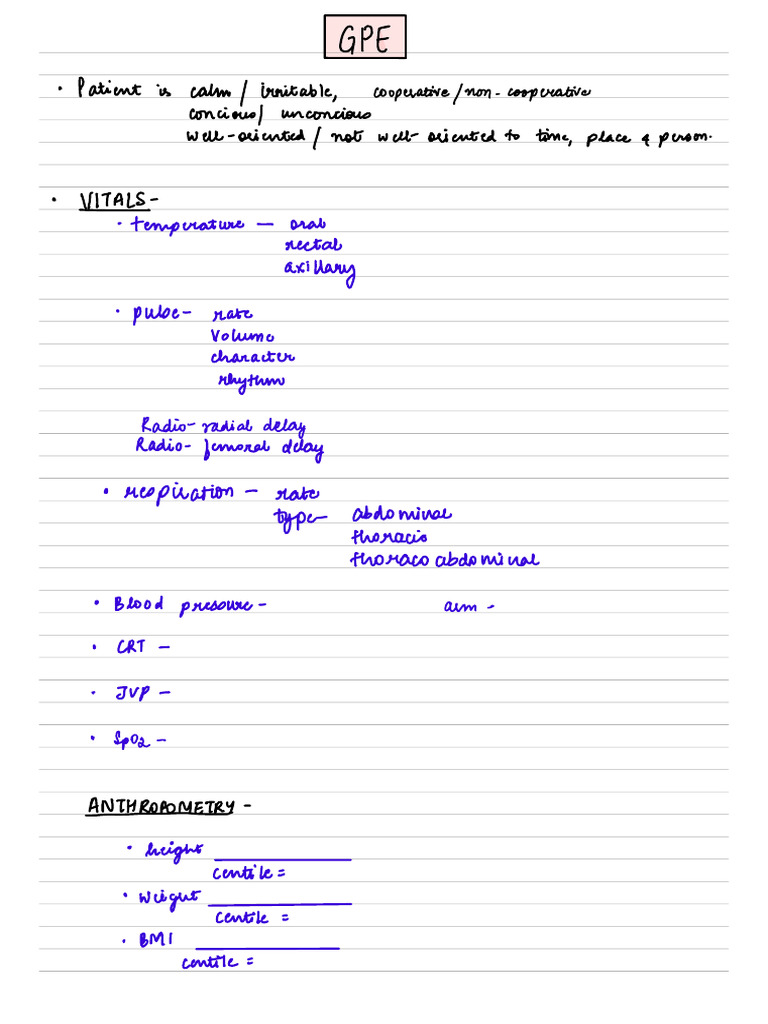 GPE
• Patient is calm / irritable, cooperative / non-cooperative
concious / unconcious
well-oriented / not well-oriented to time, place & person.
• VITALS -
• temperature — oral
rectal
axillary
• pulse - rate
Volume
character
rhythm
Radio-radial delay
Radio-femoral delay
• respiration - rate
type - abdominal
thoracic
thoraco abdominal
• Blood pressure - arm -
• CRT -
• JVP -
• SpO2 -
ANTHROPOMETRY -
• height ____________
centile =
• Weight ____________
centile =
• BMI ____________
centile =